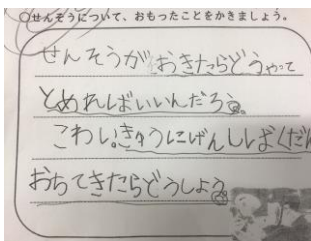 ○せんそうについて、おもったことをかきましょう。
せんそうがおきたらどうやって
とめればいいんだろう。
こわい。きゅうにげんしばくだん
おちてきたらどうしよう。